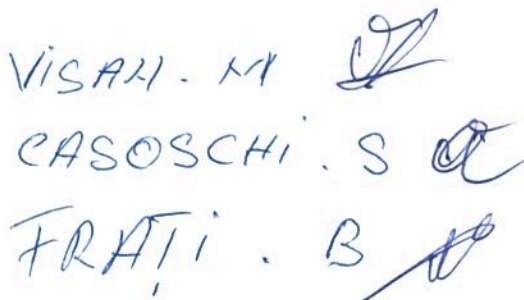 VISAN. M
CASOSCHi. S
FRAȚi. B